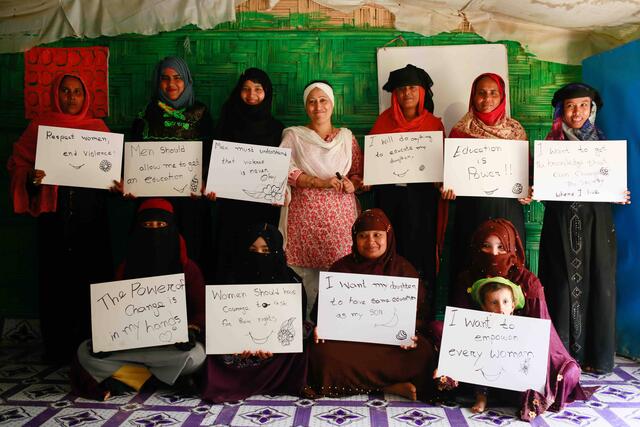 Respect women,
end violence!
Men Should
allow me to get
an education
Men must understand
that violence
is never
okay
I will do anything
to educate
my daughter.
Education
is
Power!!
I want to get
the knowledge that
can change
the society
where I live
The Power of
Change is
in my hands
Women Should have
Courage to ask
for their rights
I want my daughter
to have same education
as my son
I want to
empower
every woman